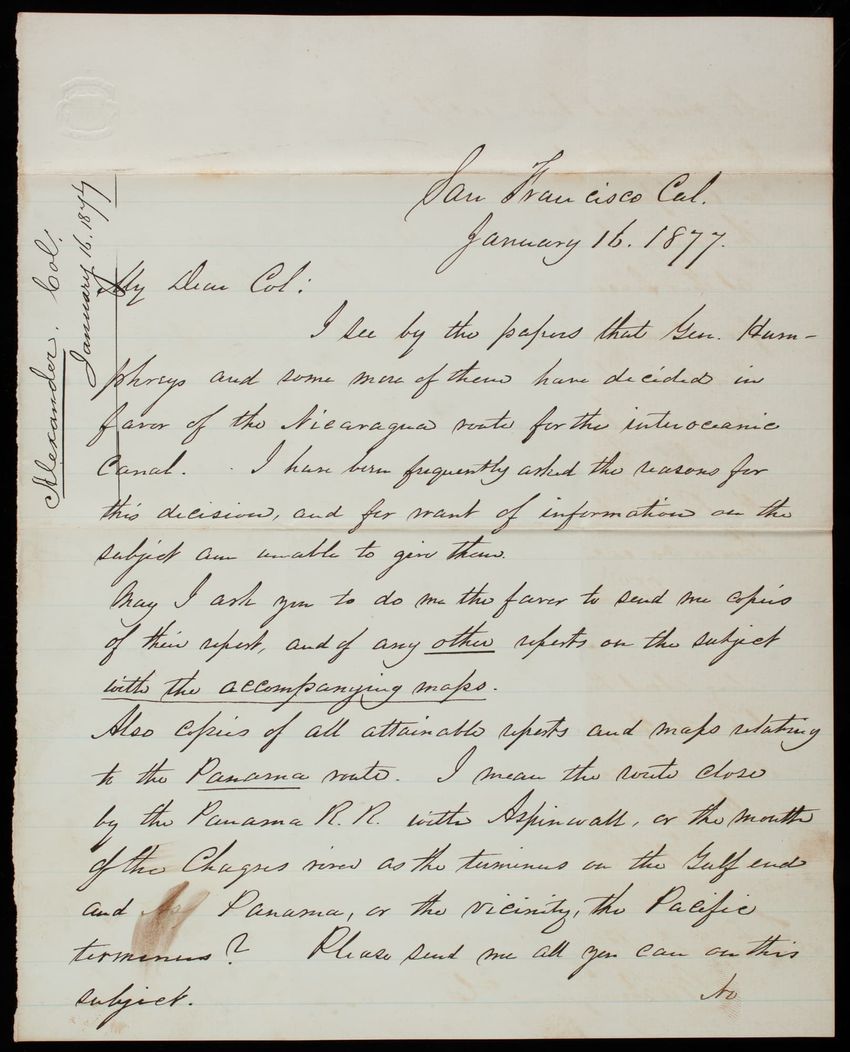 Alexander. Col.
January 16. 1877
San Francisco Cal.
January 16. 1877.
My Dear Col:
I see by the papers that Gen. Hum-
phreys and some more of them have decided in
favor of the Nicaragua route for the interoceanic
Canal. I have been frequently asked the reasons for
this decision, and for want of information on the
subject am unable to give them.
May I ask you to do me the favor to send me copies
of their report, and of any other reports on the subject
with the accompanying maps.
Also copies of all attainable reports and maps relating
to the Panama route. I mean the route close
by the Panama R. R. with Aspinwall, or the mouth
of the Chagres river as the terminus on the Gulf end
and Panama, or the vicinity, the Pacific
terminus? Please send me all you can on this
subject.
No